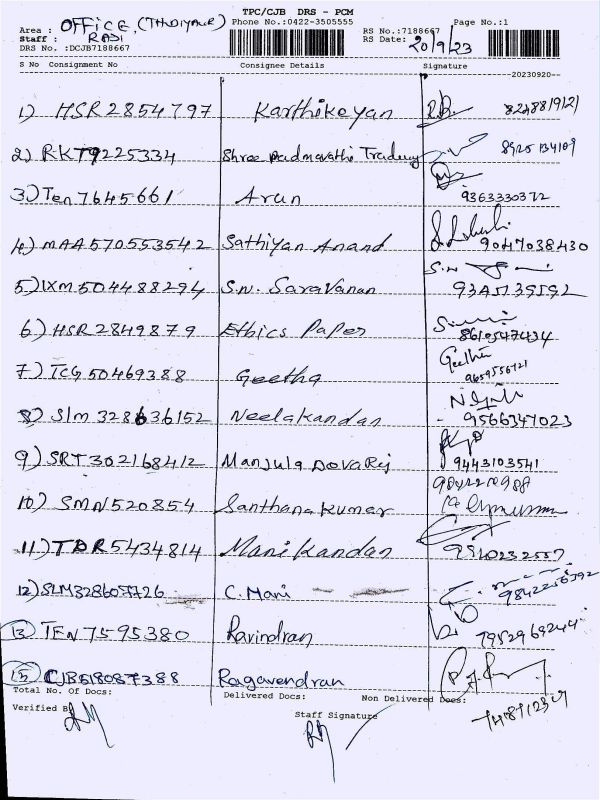 TPC/CJB DRS - PCM
Area : OFFICE, (THADIYALUR) Phone No.:0422-3505555 RS No.:7188667 Page No.:1
Staff : RAJI RS Date: 20/9/23
DRS No. :DCJB7188667
S No Consignment No Consignee Details Signature
20230920
1) HSR2854797 Karthikeyan
2) RKT9225334 Shree Padmavathi Trading
3) Ten 7645661 Arun 9363330372
4) MAA570553542 Sathiyan Anand 9047038430
5) IXM504488294 S.N. Saravanan S.N
6) HSR2849879 Ethics Paper 8610547434
7) TCG50469388 Geetha Geetha 9659556721
8) Slm 328636152 Neelakandan 9566347023
9) SRT302168412 Manjula Devaraj 9443103541
10) SMN520854 Santhanakumar
11) TDR5434814 Manikandan
12) SLM328607726 C. Mani
13) TEN 7595380 Ravindran
15) CJB518087388 Ragavendran
Total No. Of Docs: Delivered Docs: Non Delivered Docs:
Verified By Staff Signature